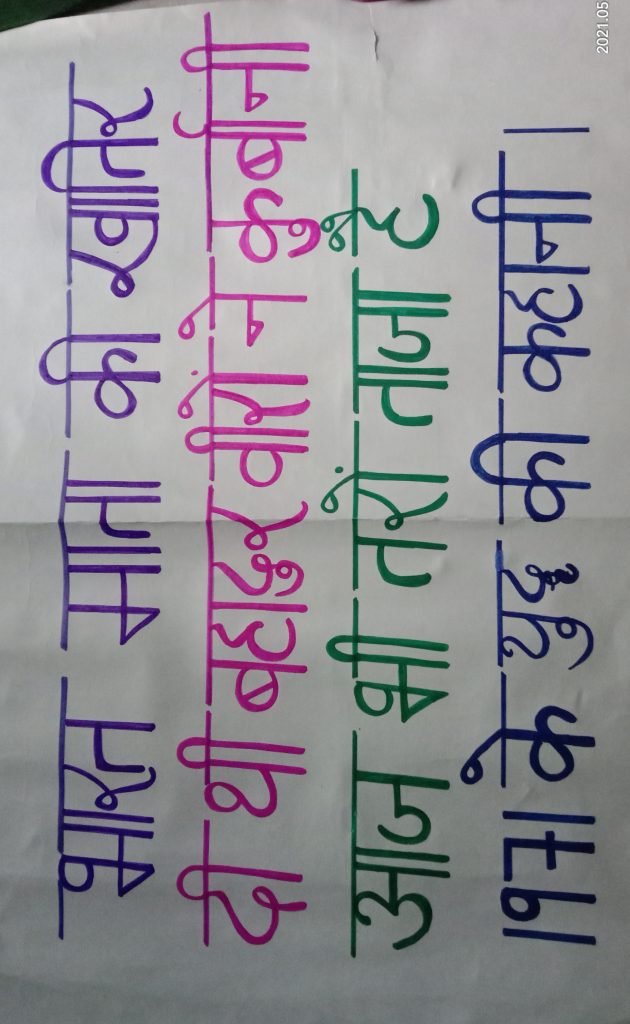 भारत माता की खातिर
दी थी बहादुर वीरों ने कुर्बानी
आज भी तरो ताजा है
१९७१ के युद्ध की कहानी।
2021.05